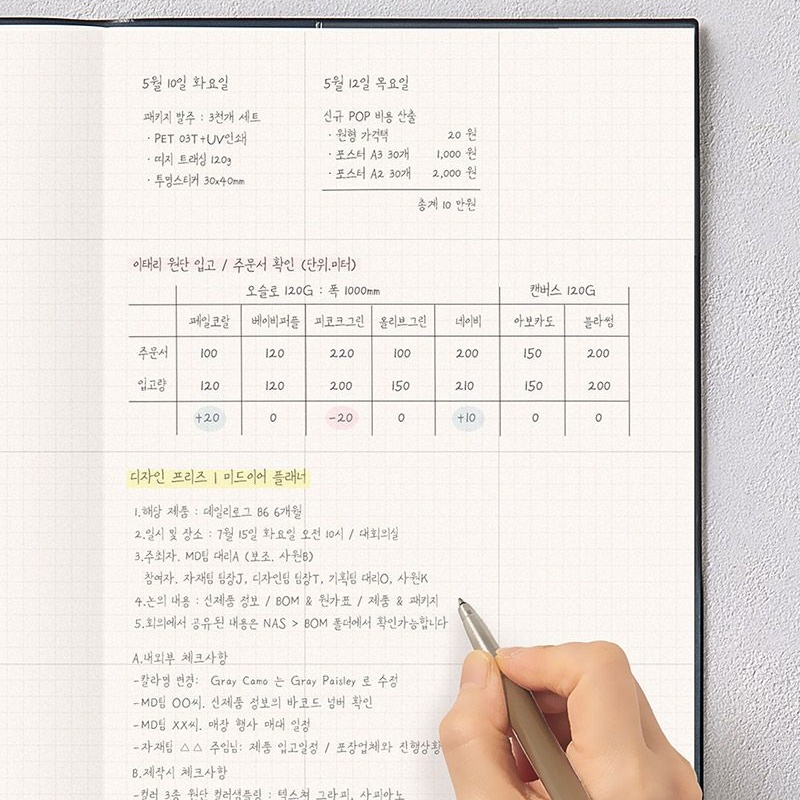 5월 10일 화요일
패키지 발주 : 3천개 세트
· PET 03T+UV인쇄
· 띠지 트래싱 120g
· 투명스티커 30x40mm
5월 12일 목요일
신규 POP 비용 산출
· 원형 가격택 20 원
· 포스터 A3 30개 1,000 원
· 포스터 A2 30개 2,000 원
총계 10 만원
이태리 원단 입고 / 주문서 확인 (단위.미터)
오슬로 120G : 폭 1000mm 캔버스 120G
페일코랄 베이비퍼플 피코크그린 올리브그린 네이비 아보카도 블라썸
주문서 100 120 220 100 200 150 200
입고량 120 120 200 150 210 150 200
+20 0 -20 0 +10 0 0
디자인 프리즈 | 미드이어 플래너
1.해당 제품 : 데일리로그 B6 6개월
2.일시 및 장소 : 7월 15일 화요일 오전 10시 / 대회의실
3.주최자. MD팀 대리A (보조. 사원B)
참여자. 자재팀 팀장J, 디자인팀 팀장T, 기획팀 대리O, 사원K
4.논의 내용 : 신제품 정보 / BOM & 원가표 / 제품 & 패키지
5.회의에서 공유된 내용은 NAS > BOM 폴더에서 확인가능합니다
A.내외부 체크사항
-칼라명 변경: Gray Camo 는 Gray Paisley 로 수정
-MD팀 OO씨. 신제품 정보의 바코드 넘버 확인
-MD팀 XX씨. 매장 행사 매대 일정
-자재팀 △△ 주임님: 제품 입고일정 / 포장업체와 진행상황
B.제작시 체크사항
-컬러 3종 원단 컬러샘플링 : 텍스쳐 그라피, 사피아노